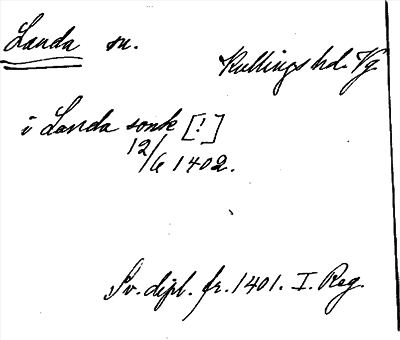 Landa sn.
Kullings hd. Vg
i Landa sonk [!]
12/6 1402.
Sv. dipl. fr. 1401. I. Reg.